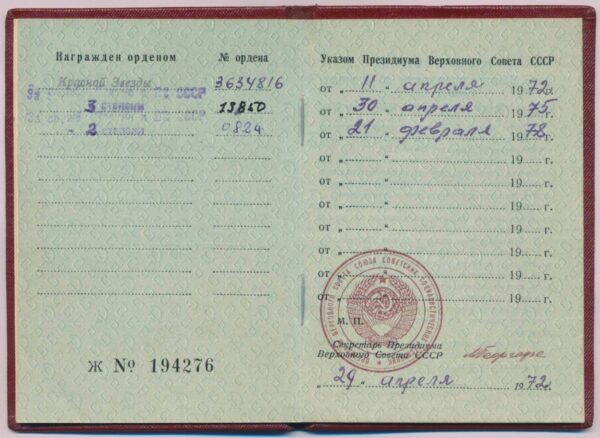 Награжден орденом
№ ордена
Красной Звезды
3634816
За ВС СССР
3 степени
13850
За ВС СССР
- 2 степени
0824
Ж № 194276
Указом Президиума Верховного Совета СССР
от „ 11 “ апреля 1972 г.
от „ 30 “ апреля 1975 г.
от „ 21 “ февраля 1978 г.
от „ “ 19 г.
от „ “ 19 г.
от „ “ 19 г.
от „ “ 19 г.
от „ “ 19 г.
от „ “ 19 г.
от „ “ 19 г.
М. П.
Секретарь Президиума
Верховного Совета СССР
„ 29 “ апреля 1972 г.